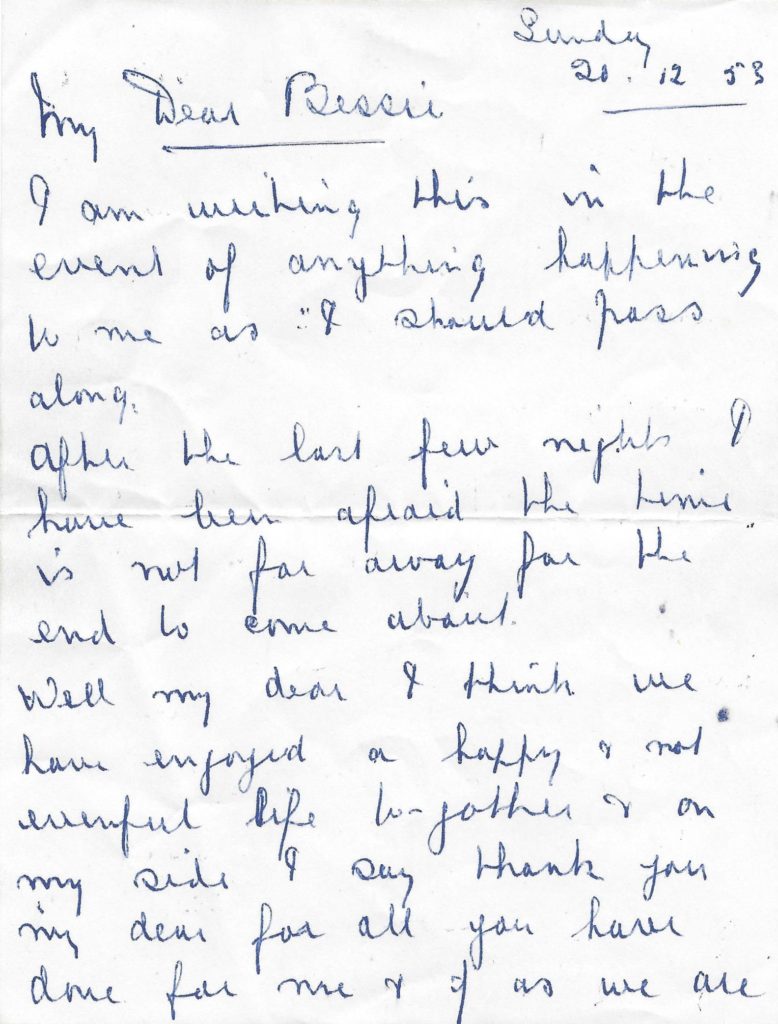 Sunday
20. 12 53
My Dear Bessie
I am writing this in the
event of anything happening
to me as "I should pass
along.
After the last few nights I
have been afraid the time
is not far away for the
end to come about.
Well my dear I think we
have enjoyed a happy & not
evenful life to-gother & on
my side I say thank you
my dear for all you have
done for me & if as we are